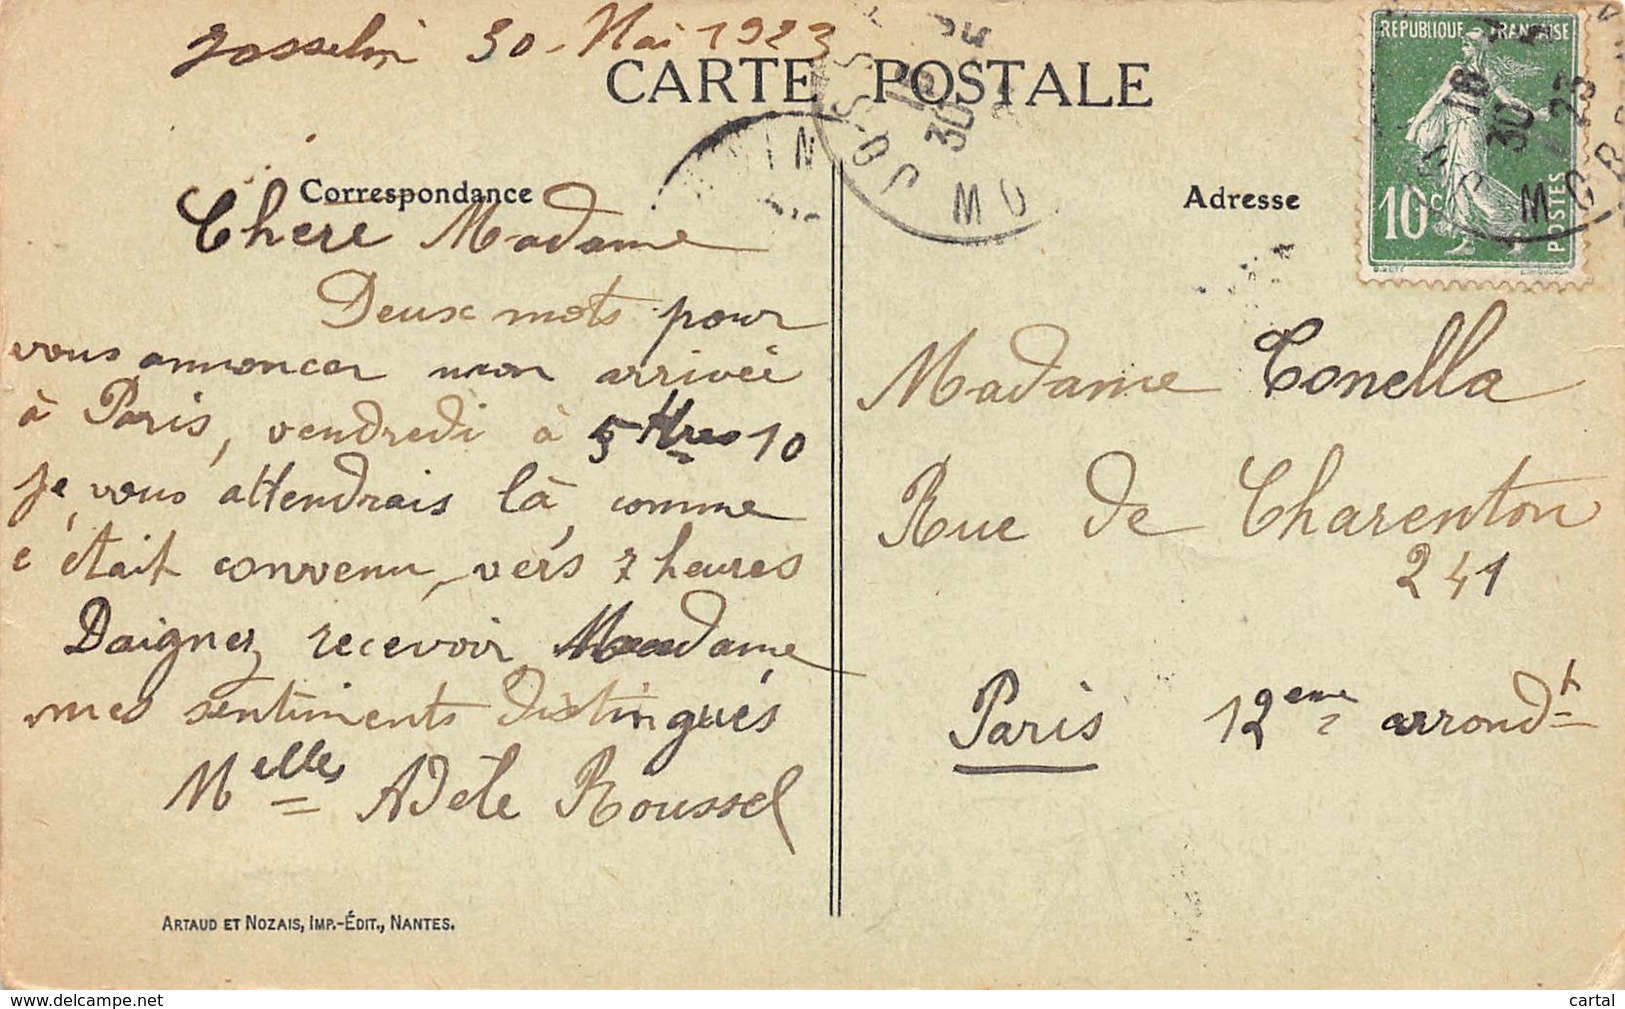 Josselin 30 - Mai 1923
CARTE POSTALE
Correspondance
Chere Madame
Deux mots pour
vous annoncer mon arrivée
à Paris, vendredi à 5 Hres 10
je vous attendrais là, comme
c'était convenu, vers 7 heures
Daignez recevoir Madame
mes sentiments distingués
Melle Adele Roussel
ARTAUD ET NOZAIS, IMP.-ÉDIT., NANTES.
Adresse
REPUBLIQUE FRANÇAISE
10c
POSTES
Madame Conella
Rue de Charenton
241
Paris 12eme arrondt
www.delcampe.net
cartal